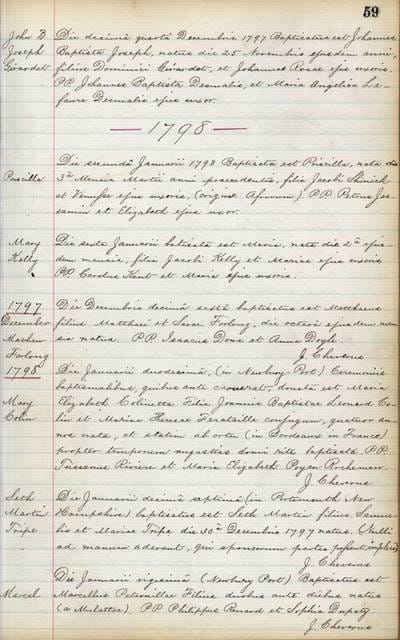 59
John B. Die decimâ quartâ Decembris 1797 Baptisatus est Johannes
Joseph Baptista Joseph, natus die 25 Novembris ejusdem anni,
Girardet filius Dominici Girardet, et Johannae Rosae ejus uxoris.
PP. Johannes Baptista Desmalis, et Maria Angelica Le-
favre Desmalis ejus uxor.
1798
Die secundâ Januarii 1798 Baptisata est Priscilla, nata die
Priscilla 3â Mensis Martii anni praecedentis, filia Jacobi
et ejus uxoris, (origine Afrorum) PP. Petrus
et Elizabeth ejus uxor.
Mary Die sexta Januarii batisata est Maria, nata die 2â ejus-
Kelly dem mensis, filia Jacobi Kelly et Mariae ejus uxoris
PP. Carolus Kent et Maria ejus uxoris.
1797 Die Decembris decimâ sextâ baptisatus est Matthaeus
December filius Matthaei et Sarae Forlong, die octavâ ejusdem men
Mathew sis natus. PP. Isaacus Dowe et Anna Doyle.
Forlong J. Cheverus
1798 Die Januarii duodecimâ, (in Newbury-Port) Ceremoniis
baptismalibus, quibus ante caruerat, donata est Maria
Mary Elizabeth Colinetta Filia Joannis Baptistae Leonard Co-
Colin lin et Mariae Theresae Ferataille conjugum, quatuor an-
nos nata, et statim ab ortu (in Bordeaux in France)
propter temporum angustias domi rite baptisata. PP.
Tussanus Riviere et Maria Elizabeth Poyen Rochemem.
J. Cheverus
Seth Die Januarii decimâ septimâ (in Portsmouth New
Martin Hampshire) baptisatus est Seth Martin filius Samue-
Tripe lis et Mariae Tripe die 30â Decembris 1797 natus. (Nulli
ad manum aderant, qui sponsorum partes possent implere)
J. Cheverus
Die Januarii vigesimâ (Newbury Port) Baptisatus est
Marcel Marcellus Petronillae Filius duobus ante diebus natus
(a Mulattoe). PP. Philippus Renard et Sophia Dupaty.
J. Cheverus